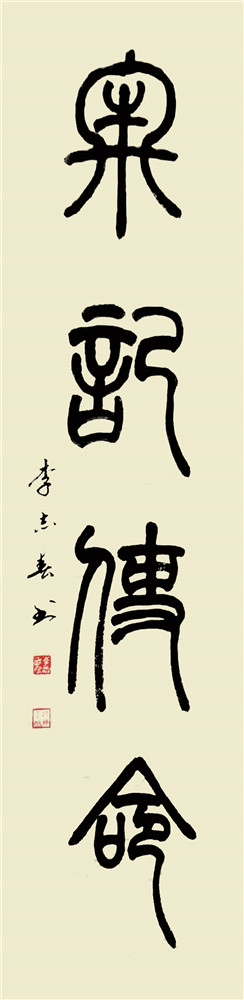 牢記使命
李志春书